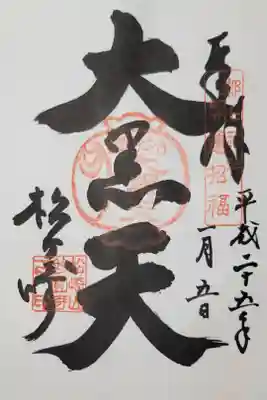 奉拝
平成二十五年
一月五日
大黒天
松ヶ崎
招福